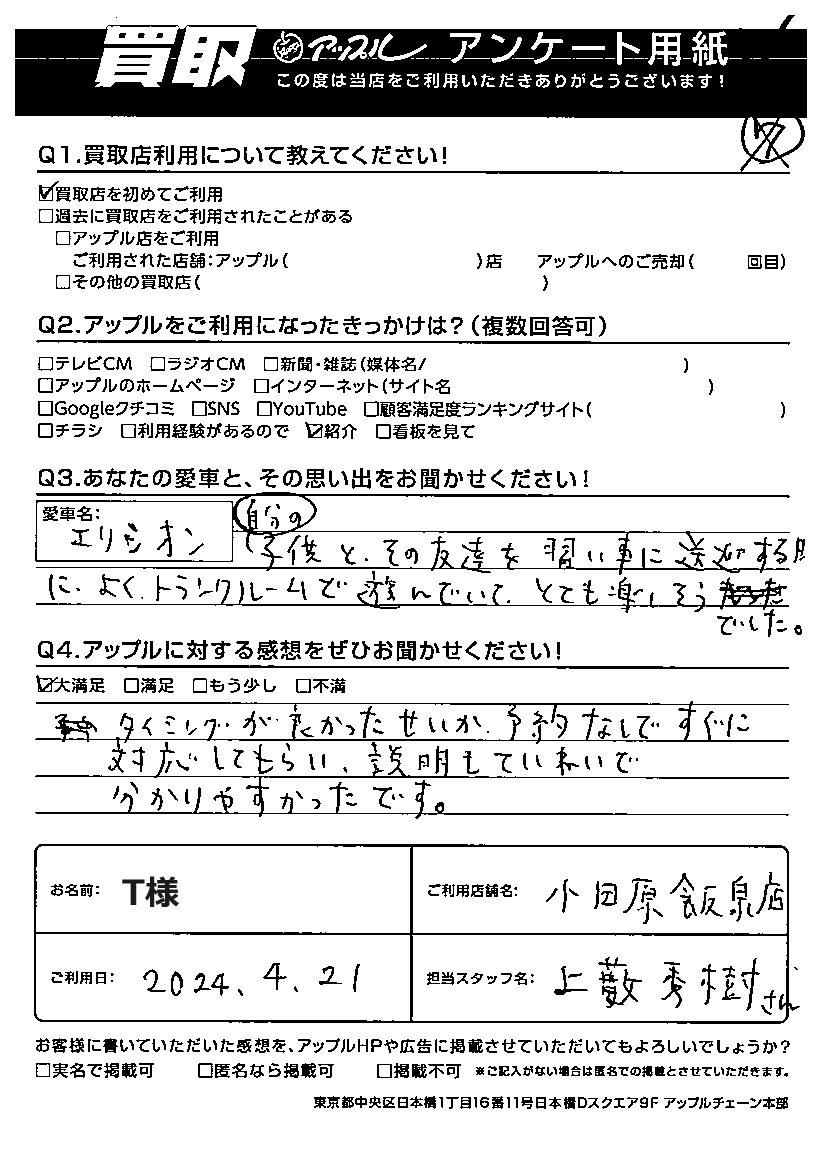 買取 アップル アンケート用紙
この度は当店をご利用いただきありがとうございます!
Q1.買取店利用について教えてください!
☑買取店を初めてご利用
□過去に買取店をご利用されたことがある
□アップル店をご利用
ご利用された店舗:アップル( )店 アップルへのご売却( 回目)
□その他の買取店( )
Q2.アップルをご利用になったきっかけは?(複数回答可)
□テレビCM □ラジオCM □新聞・雑誌(媒体名/ )
□アップルのホームページ □インターネット(サイト名 )
□Googleクチコミ □SNS □YouTube □顧客満足度ランキングサイト( )
□チラシ □利用経験があるので ☑紹介 □看板を見て
Q3.あなたの愛車と、その思い出をお聞かせください!
愛車名:
エリシオン
自分の
子供と、その友達を習い事に送迎する時
に、よく、トランクルームで遊んでいて、とても楽しそう
でした。
Q4.アップルに対する感想をぜひお聞かせください!
☑大満足 □満足 □もう少し □不満
タイミングが良かったせいか、予約なしですぐに
対応してもらい、説明もていねいで
分かりやすかったです。
お名前: T様
ご利用店舗名: 小田原飯泉店
ご利用日: 2024.4.21
担当スタッフ名: 上藪秀樹さん
お客様に書いていただいた感想を、アップルHPや広告に掲載させていただいてもよろしいでしょうか?
□実名で掲載可 □匿名なら掲載可 □掲載不可 ※ご記入がない場合は匿名での掲載とさせていただきます。
東京都中央区日本橋1丁目16番11号日本橋Dスクエア9F アップルチェーン本部